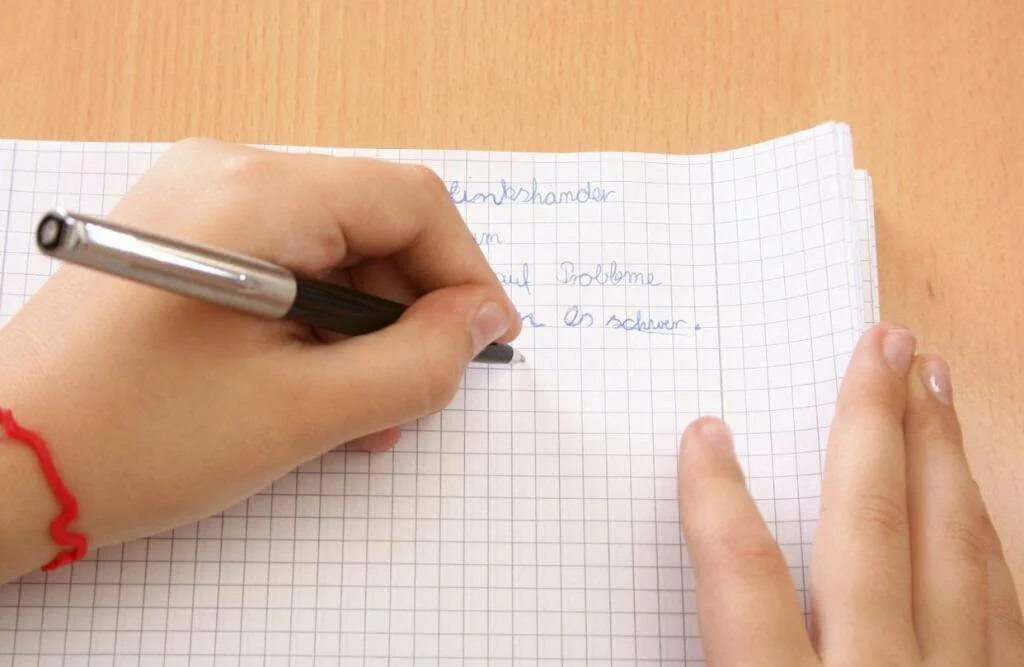 Linkshänder
m
auf Probleme
n es schwer.